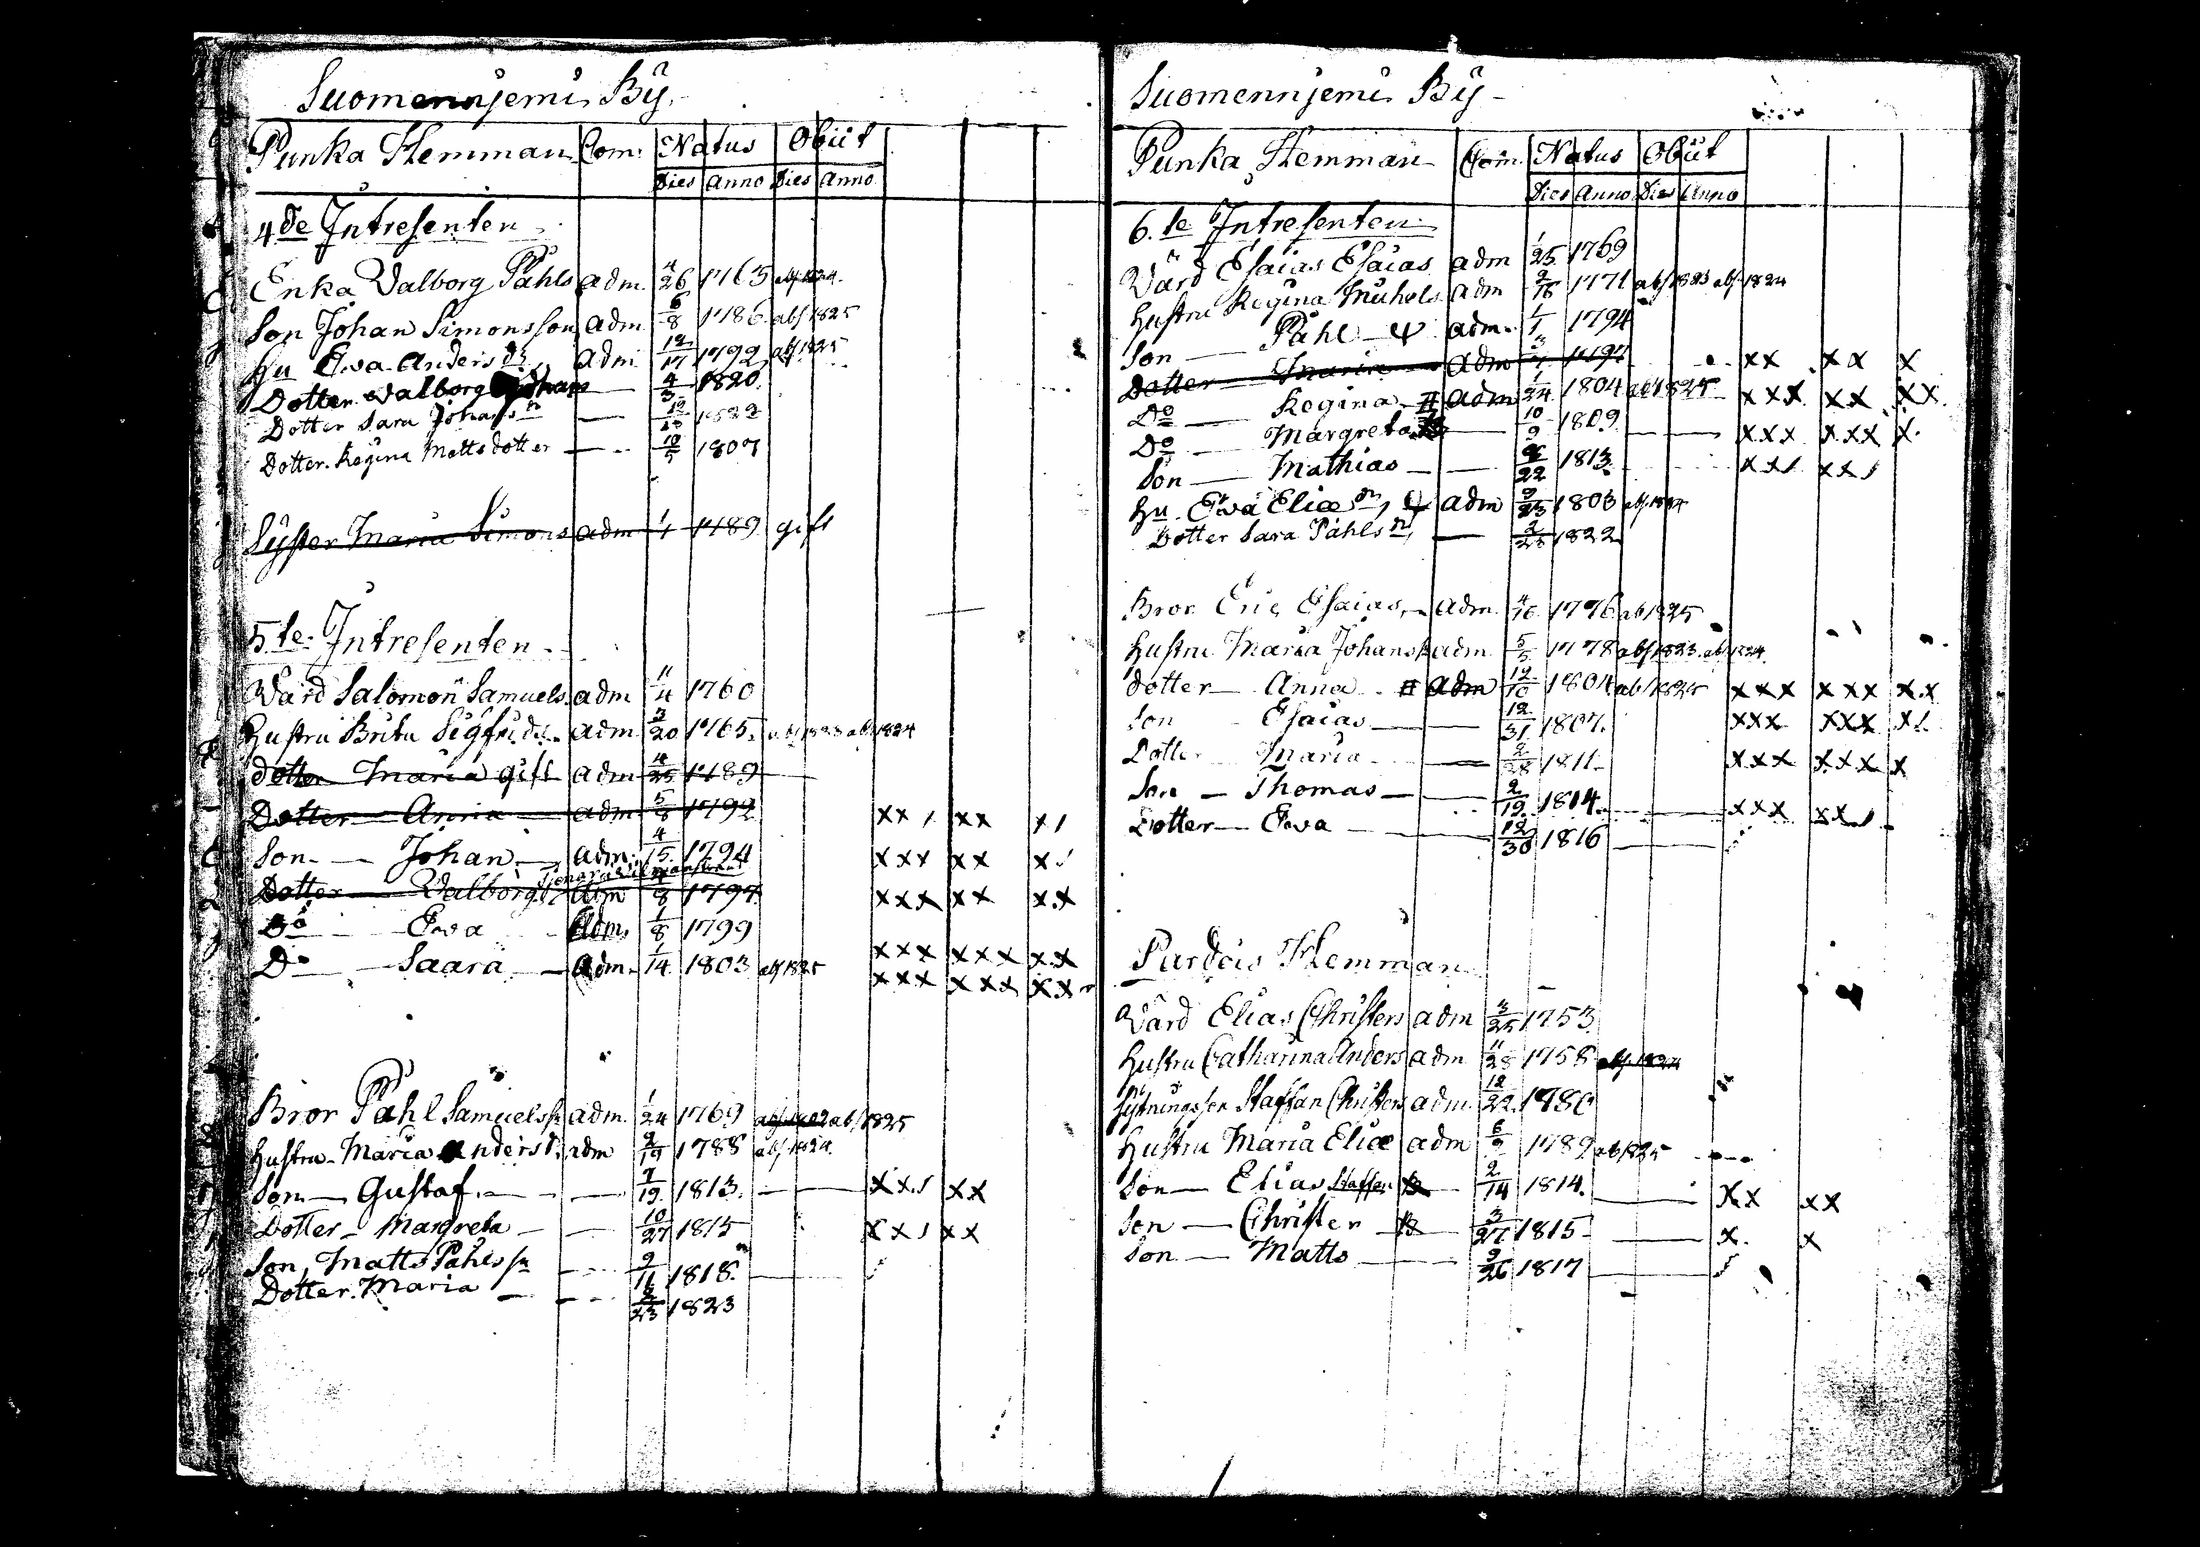 Suomennjemi By
Punka Hemman Com: Natus Obiit
Dies Anno Dies Anno
4de Intresenten
Enka Valborg Påhls adm. 4/26 1763 abs 1824.
Son Johan Simonsson adm. 6/8 1786. abs 1825
Hu Ewa Anders dr adm 12/17 1792 abs 1825
Dotter Valborg — 4/3 1820.
Dotter Sara Johans dr — 1822
Dotter. Regina Matts dotter — 10/5 1807
Syster Maria Simons adm 1/1 1789 gift
5.te Intresenten
Vård Salomon Samuels. adm 11/4 1760
Hustru Brita Sigfrids adm 3/20 1765. abs 1823 abs 1824
Dotter Maria gift adm 4/25 1789
Dotter — Anna — adm 5/8 1792 xx xx x
Son — Johan — adm. 4/15. 1794 xxx xx x
Dotter — Valborg adm 8 1797 xxx xx xx
Do — Ewa adm. 1/8 1799 xxx xxx xx
Do — Saara — adm. 1/14 1803 abs 1825 xxx xxx xx
Bror Påhl Samuelss. adm. 1/24 1769 abs 1825
Hustru Maria Anders d. adm 2/19 1788 abs 1824.
Son — Gustaf — 7/19. 1813. xx xx
Dotter — Margreta — 10/27 1815 xx xx
Son Matts Påhlssn — 9/11 1818.
Dotter. Maria — 2/23 1823
Suomennjemi By
Punka Hemman Com. Natus Obiit
Dies Anno Dies Anno
6.te Intresenten
Vård Esaias Esaias adm 1/25 1769
Hustru Regina Michels adm 2/18 1771 abs 1823 abs 1824
Son — Påhl adm. 1/1 1794
Dotter — Maria adm 3/7 1797 xx xx x
Do — Regina # adm 1/24 1804 abs 1825 xxx xx xx
Do — Margreta — 10/9 1809 xxx xxx x
Son — Mathias — 22 1813. xx xx
Hu Ewa Eliæ dr adm 9/23 1803 abs 1824
Dotter Sara Påhls dr — 2/28 1822
Bror Eric Esaias adm. 4/16 1776 abs 1825
Hustru Maria Johans adm 5/5 1778 abs 1823. abs 1824.
Dotter — Anna # adm 12/10 1804 abs 1825 xxx xxx xx
Son Esaias — 12/31 1807. xxx xxx x
Dotter Maria — 2/28 1811 xxx xxx x
Son — Thomas — 2/19. 1814. xxx xx
Dotter — Ewa — 12/30 1816
Pardois Hemman
Vård Elias Christers adm 3/25 1753.
Hustru Catharina Anders adm 11/28 1758 abs 1824
Sytningsson Staffan Christers adm. 12/22. 1780
Hustru Maria Eliæ adm 6/9 1789 abs 1825
Son — Elias Staffan — 2/14 1814. xx xx
Son — Christer — 3/27 1815 x x
Son — Matts — 9/26 1817